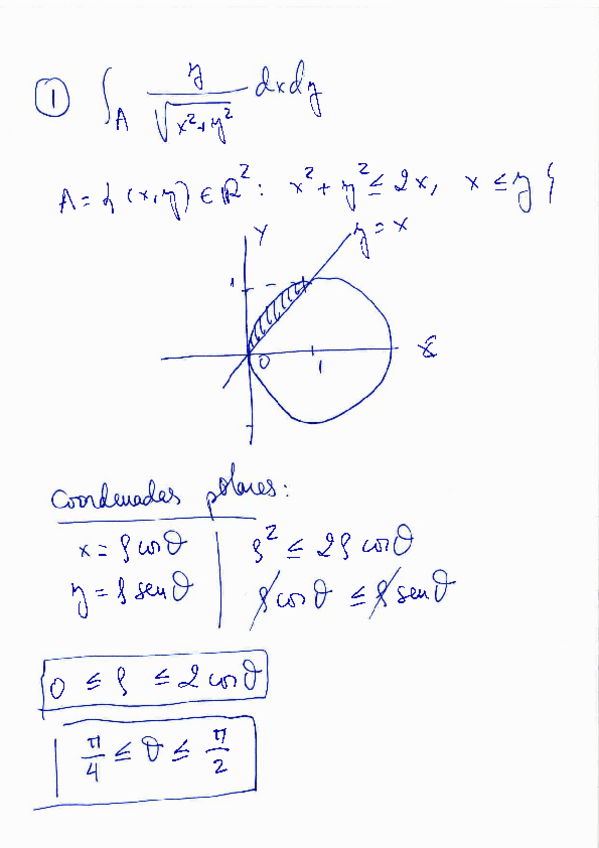 ① ∫_A y/√(x²+y²) dxdy
A = { (x,y) ∈ ℝ² : x² + y² ≤ 2x, x ≤ y }
Y
y = x
1
0
1
X
Coordenadas polares:
x = ρ cos θ | ρ² ≤ 2ρ cos θ
y = ρ sen θ | ρ cos θ ≤ ρ sen θ
0 ≤ ρ ≤ 2 cos θ
π/4 ≤ θ ≤ π/2